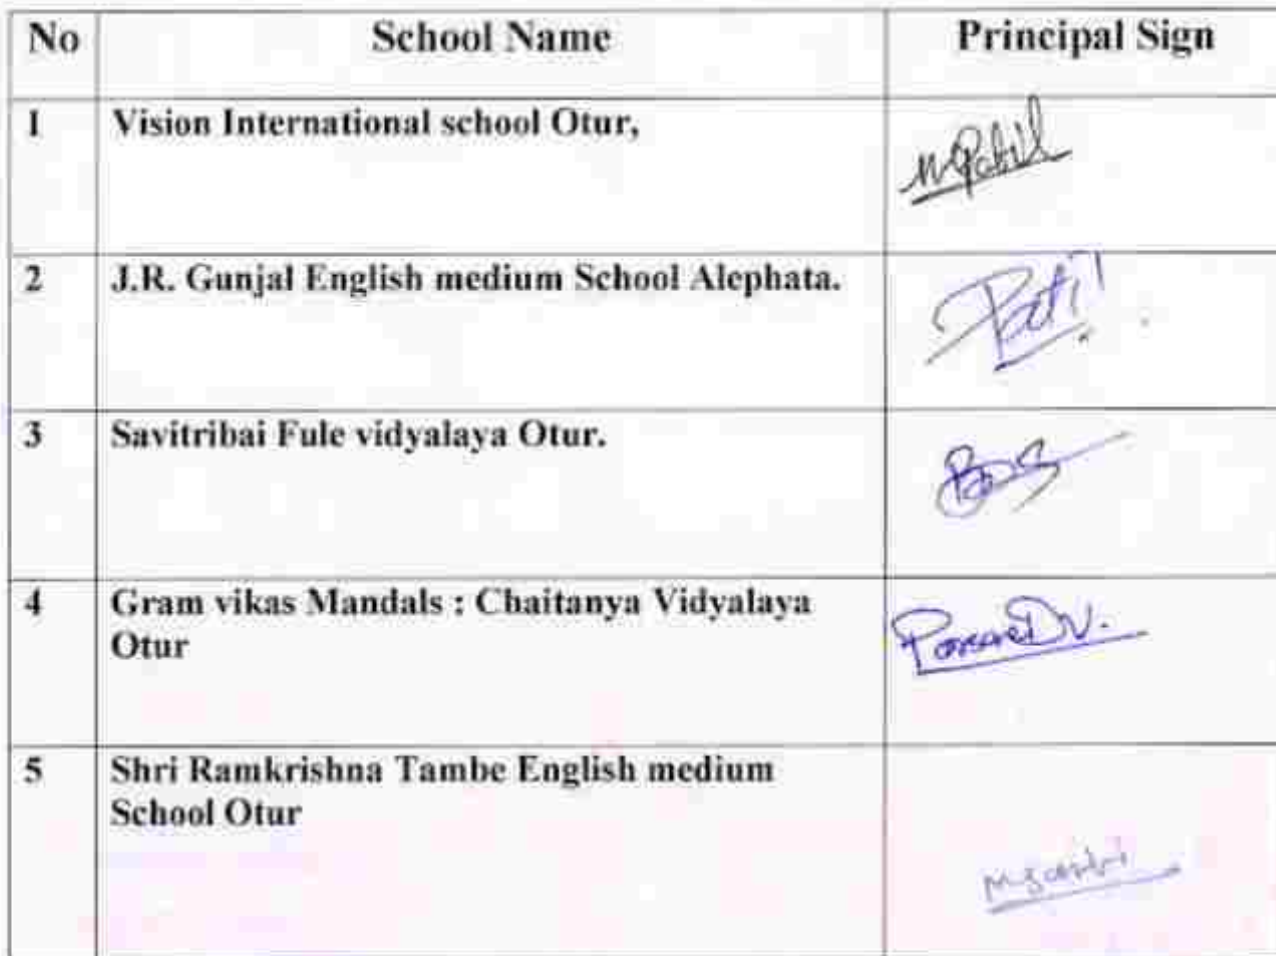 No School Name Principal Sign
1 Vision International school Otur,
MPatil
2 J.R. Gunjal English medium School Alephata.
Patil
3 Savitribai Fule vidyalaya Otur.
4 Gram vikas Mandals : Chaitanya Vidyalaya
Otur
D.V.
5 Shri Ramkrishna Tambe English medium
School Otur